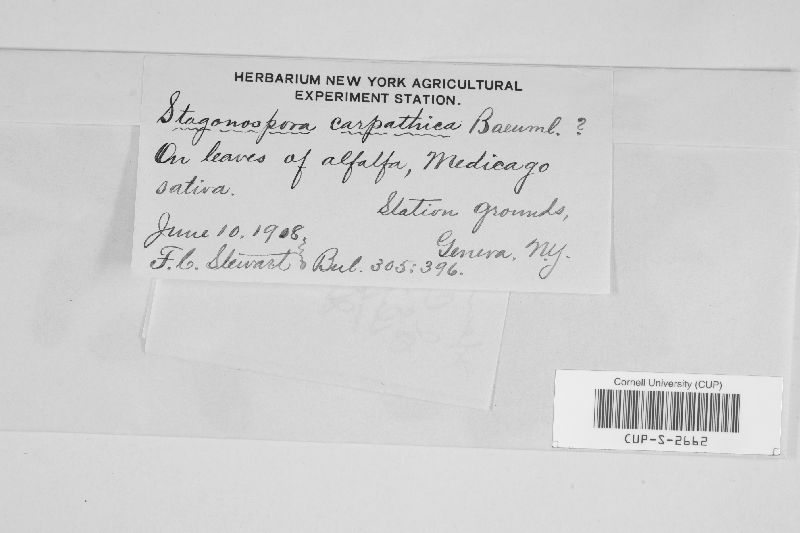 HERBARIUM NEW YORK AGRICULTURAL
EXPERIMENT STATION.
Stagonospora carpathica Baeuml. ?
On leaves of alfalfa, Medicago
sativa.
Station grounds,
June 10, 1908.
Geneva, N.Y.
F.C. Stewart Bul. 305:396.
Cornell University (CUP)
CUP-S-2662